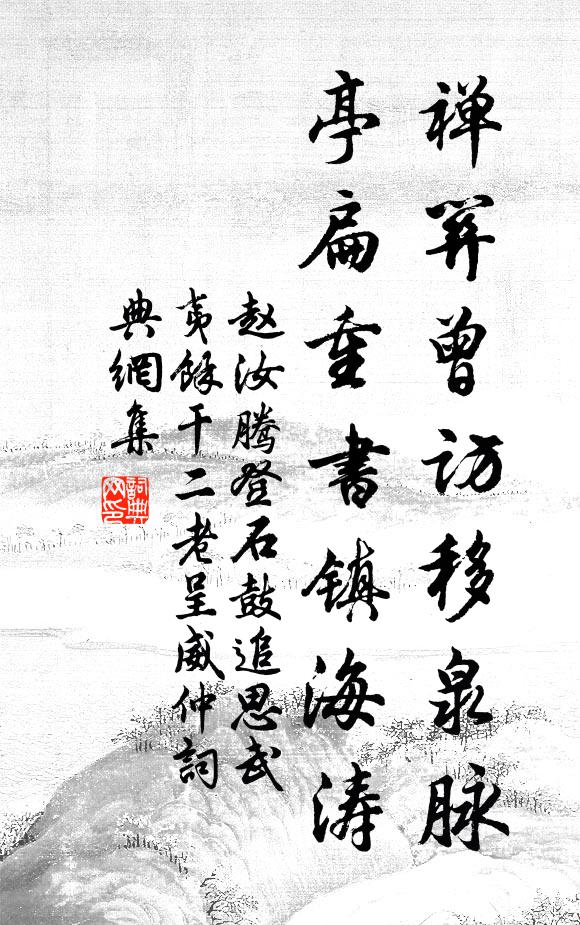 禅關曾访移泉脉
亭扁重書镇海涛
赵汝騰登石鼓追思武
夷餘干二老呈威仲詞
典網集
詞典
网印